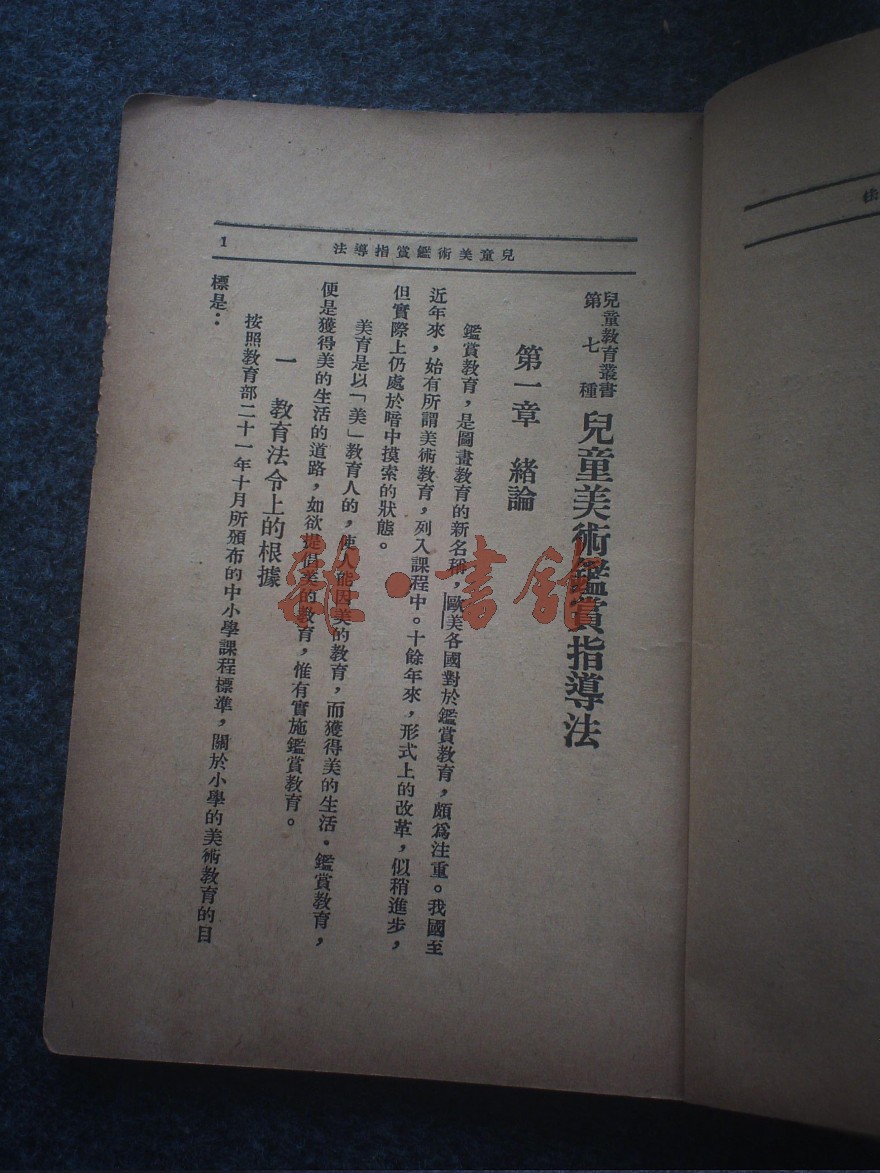 兒童美術鑑賞指導法
1
兒童教育叢書
第七種
兒童美術鑑賞指導法
第一章 緒論
鑑賞教育，是圖畫教育的新名稱，歐美各國對於鑑賞教育，頗爲注重。我國至
近年來，始有所謂美術教育，列入課程中。十餘年來，形式上的改革，似稍進步，
但實際上仍處於暗中摸索的狀態。
美育是以「美」教育人的，使人能因美的教育，而獲得美的生活．鑑賞教育，
便是獲得美的生活的道路，如欲提倡美的教育，惟有實施鑑賞教育。
一 教育法令上的根據
按照教育部二十一年十月所頒布的中小學課程標準，關於小學的美術教育的目
標是：
法
雜·書館